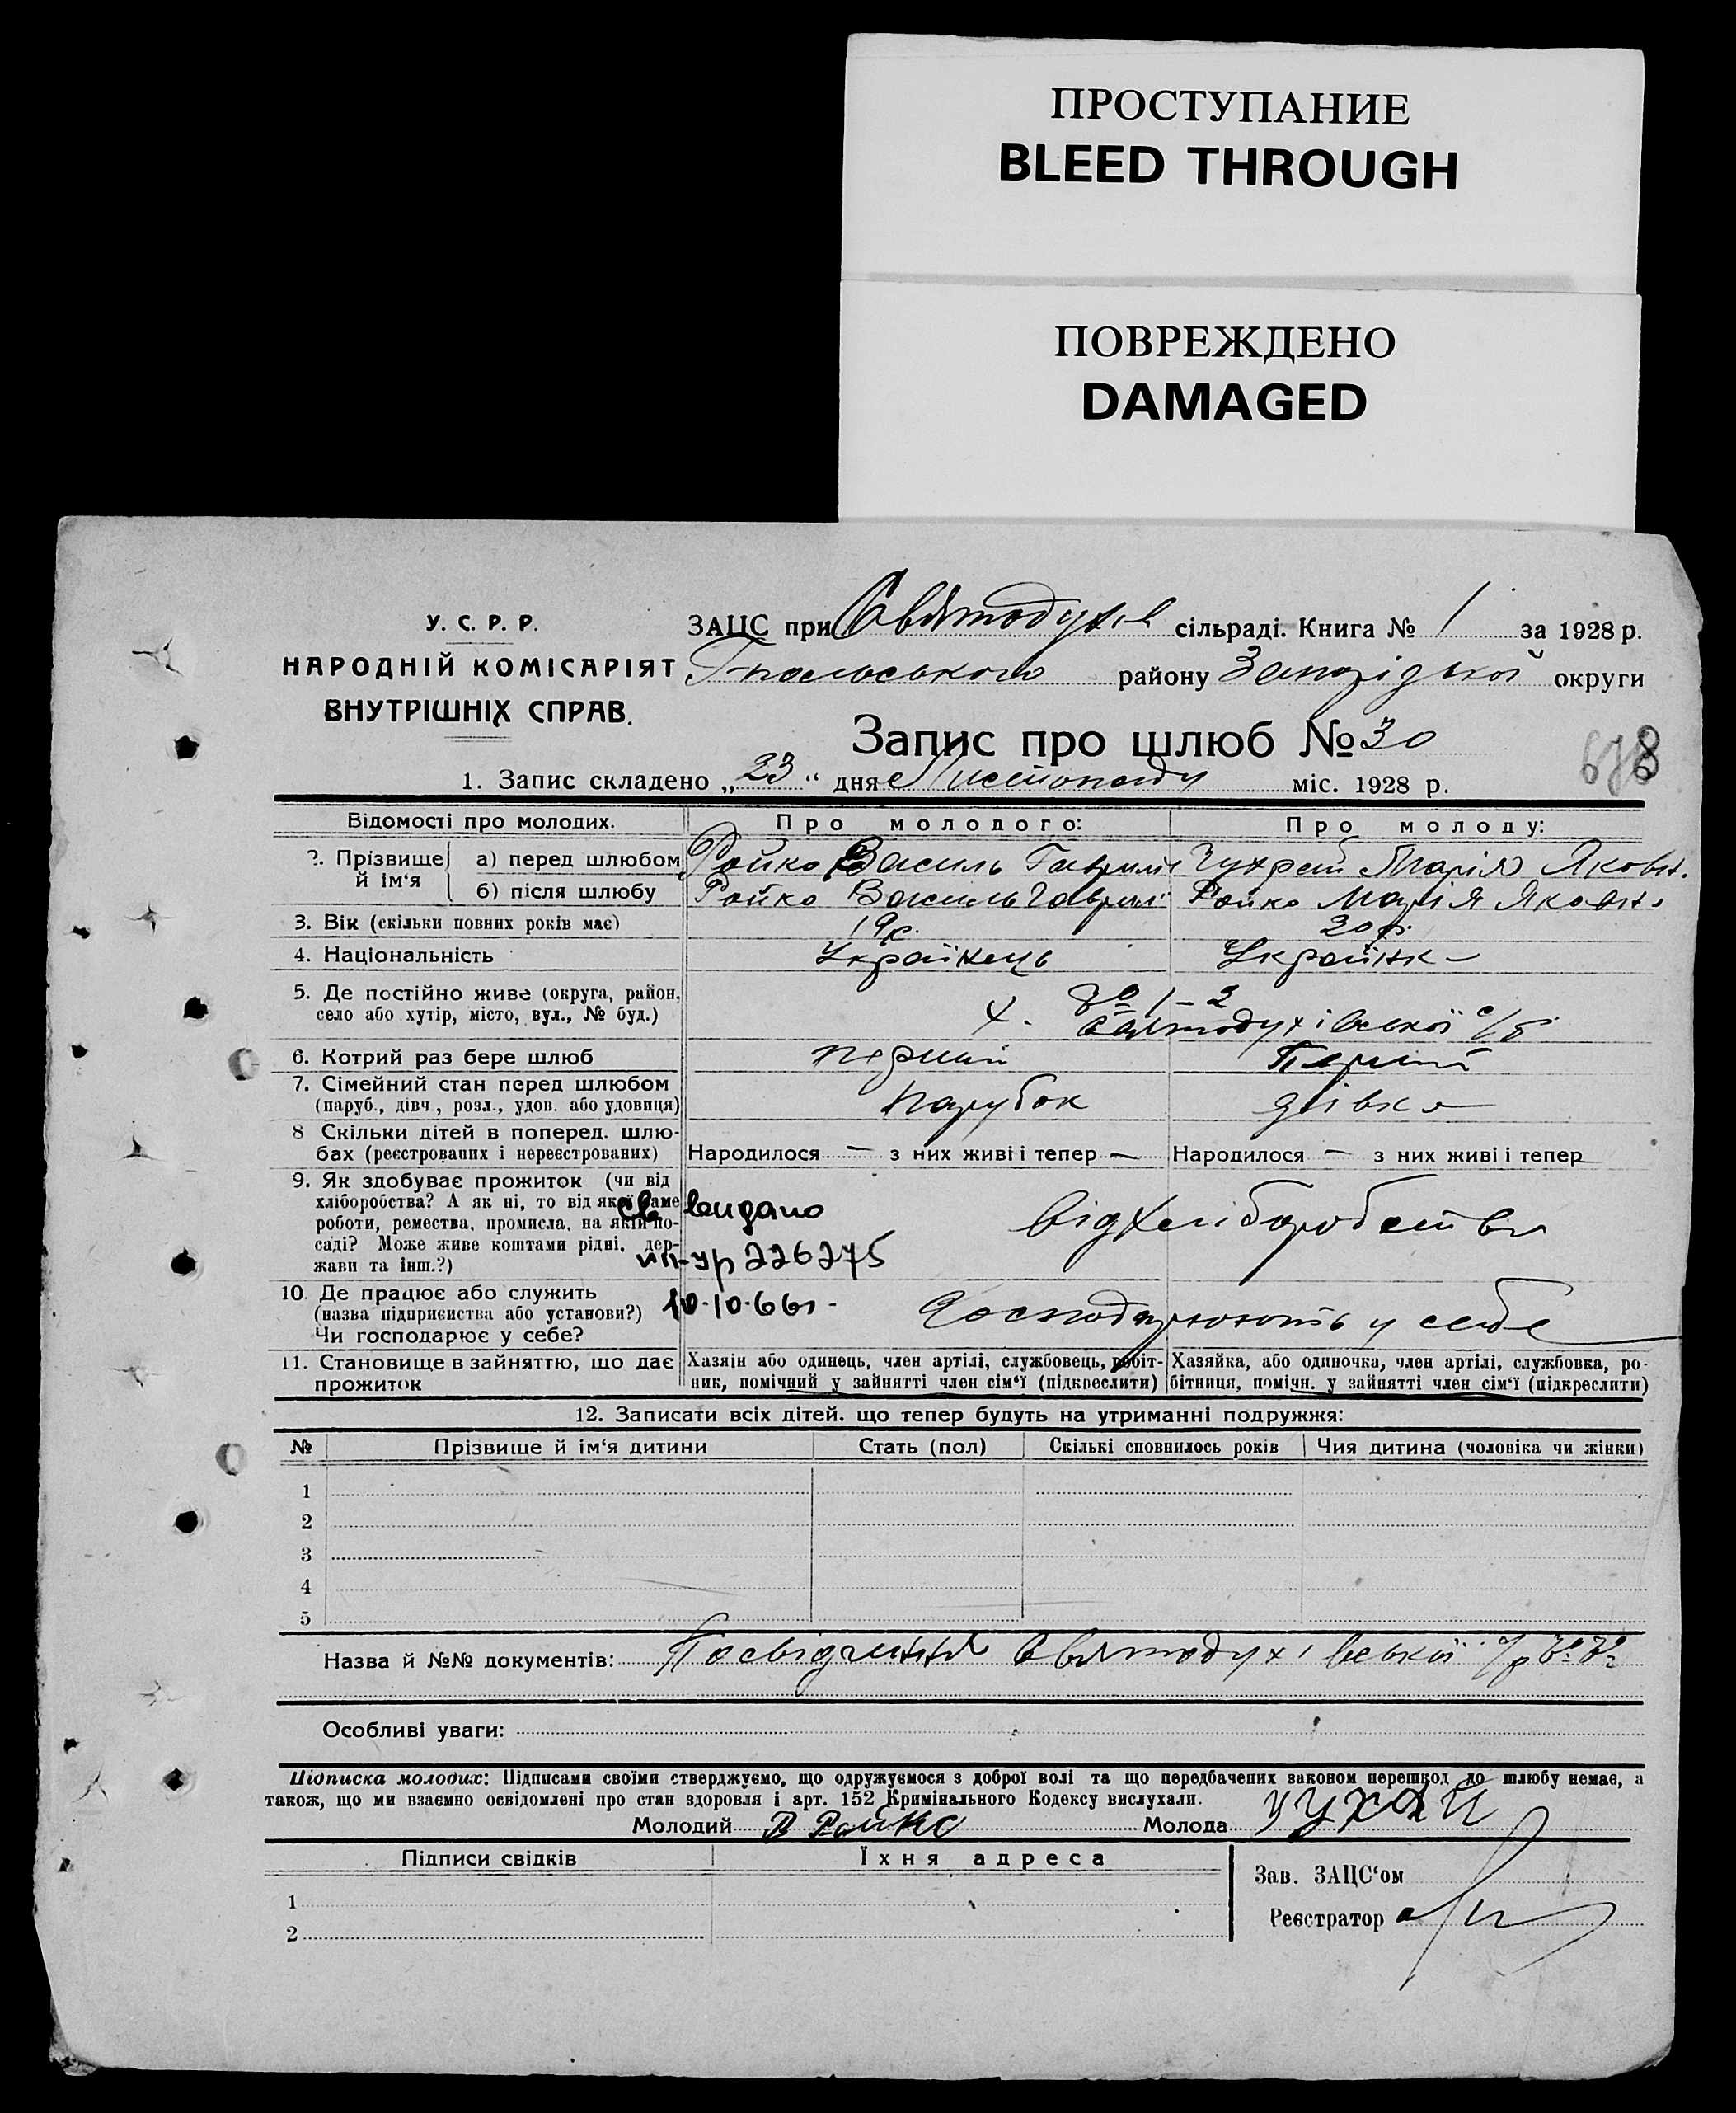 ПРОСТУПАНИЕ
BLEED THROUGH
ПОВРЕЖДЕНО
DAMAGED
У. С. Р. Р.
НАРОДНІЙ КОМІСАРІЯТ
ВНУТРІШНІХ СПРАВ.
ЗАЦС при Святодухів сільраді. Книга № 1 за 1928 р.
району Запорізької округи
Запис про шлюб № 30
678
1. Запис складено „23“ дня Листопаду міс. 1928 р.
Відомості про молодих. Про молодого: Про молоду:
2. Прізвище й ім‘я
а) перед шлюбом Ройко Василь Гаврил Чухрай Марія Яковл.
б) після шлюбу Ройко Василь Гаврил Ройко Марія Яковл.
3. Вік (скільки повних років має) 19 р. 20 р.
4. Національність Українець Українк
5. Де постійно живе (округа, район,
село або хутір, місто, вул., № буд.) х. № 1-2
Святодухівської с/р
6. Котрий раз бере шлюб перший Перший
7. Сімейний стан перед шлюбом
(паруб., дівч., розл., удов. або удовиця) парубок дівка
8 Скільки дітей в поперед. шлю-
бах (реєстрованих і нереєстрованих) Народилося — з них живі і тепер — Народилося — з них живі і тепер
9. Як здобуває прожиток (чи від
хліборобства? А як ні, то від якої саме
роботи, ремества, промисла, на якій по-
саді? Може живе коштами рідні, дер-
жави та інш.?)
від хліборобства
св видано
226275
10.10.66г.
10. Де працює або служить
(назва підприємства або установи?)
Чи господарює у себе?
Господарюють у себе
11. Становище в зайняттю, що дає
прожиток
Хазяїн або одинець, член артілі, службовець, робіт-
ник, помічний у зайнятті член сім‘ї (підкреслити)
Хазяйка, або одиночка, член артілі, службовка, ро-
бітниця, помічн. у зайнятті член сім‘ї (підкреслити)
12. Записати всіх дітей. що тепер будуть на утриманні подружжя:
№ Прізвище й ім‘я дитини Стать (пол) Скількі сповнилось років Чия дитина (чоловіка чи жінки)
1
2
3
4
5
Назва й №№ документів: Посвідчення Святодухівської с/р
Особливі уваги:
Підписка молодих: Підписами своїми стверджуємо, що одружуємося з доброї волі та що передбачених законом перешкод до шлюбу немає, а
також, що ми взаємно освідомлені про стан здоровля і арт. 152 Кримінального Кодексу вислухали.
Молодий В Ройко Молода
Підписи свідків Їхня адреса
Зав. ЗАЦС‘ом
1
Реєстратор
2